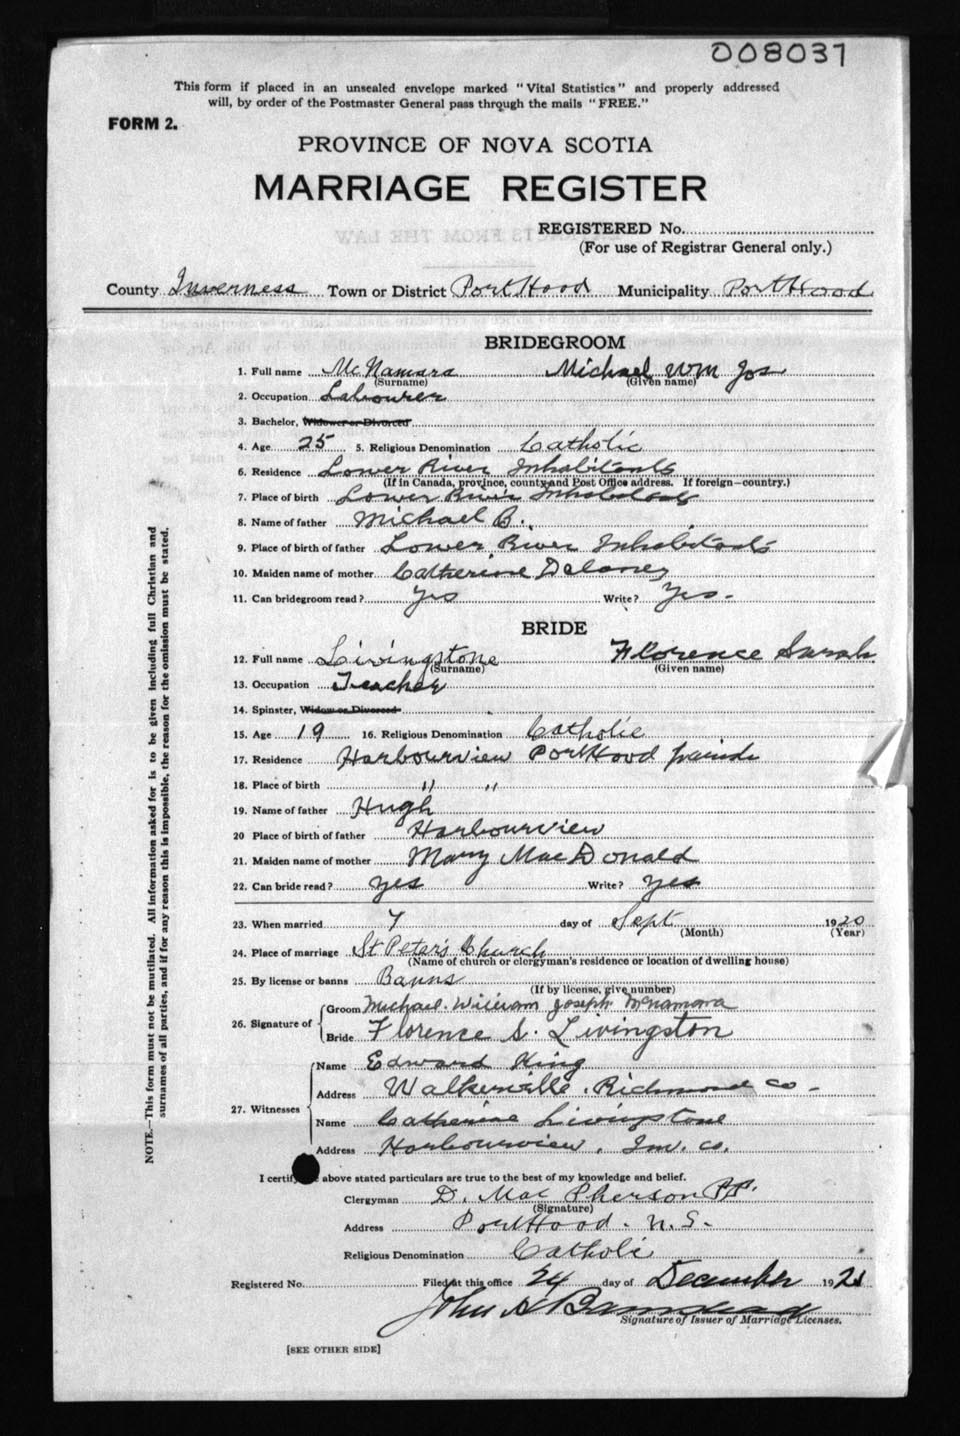 008037
This form if placed in an unsealed envelope marked "Vital Statistics" and properly addressed
will, by order of the Postmaster General pass through the mails "FREE."
FORM 2.
PROVINCE OF NOVA SCOTIA
MARRIAGE REGISTER
REGISTERED No.
(For use of Registrar General only.)
County Inverness Town or District Port Hood Municipality Port Hood
BRIDEGROOM
1. Full name McNamara Michael Wm Jos
(Surname) (Given name)
2. Occupation Labourer
3. Bachelor, Widower or Divorced
4. Age 25 5. Religious Denomination Catholic
6. Residence Lower River Inhabitants
(If in Canada, province, county and Post Office address. If foreign—country.)
7. Place of birth Lower River Inhabitants
8. Name of father Michael B.
9. Place of birth of father Lower River Inhabitants
10. Maiden name of mother Catherine Delaney
11. Can bridegroom read? Yes Write? Yes.
BRIDE
12. Full name Livingstone Florence Sarah
(Surname) (Given name)
13. Occupation Teacher
14. Spinster, Widow or Divorced
15. Age 19 16. Religious Denomination Catholic
17. Residence Harbourview Port Hood parish
18. Place of birth " "
19. Name of father Hugh
20 Place of birth of father Harbourview
21. Maiden name of mother Mary MacDonald
22. Can bride read? yes Write? yes
23. When married 7 day of Sept 1920
(Month) (Year)
24. Place of marriage St Peter's Church
(Name of church or clergyman's residence or location of dwelling house)
25. By license or banns Banns
(If by license, give number)
26. Signature of
Groom Michael William Joseph McNamara
Bride Florence S. Livingston
27. Witnesses
Name Edward King
Address Walkerville, Richmond Co-
Name Catherine Livingstone
Address Harbourview, Inv. Co.
I certify above stated particulars are true to the best of my knowledge and belief.
Clergyman D. MacPherson P.P.
(Signature)
Address Port Hood. N.S.
Religious Denomination Catholic
Registered No. Filed at this office 24 day of December 1921
John A
Signature of Issuer of Marriage Licenses.
[SEE OTHER SIDE]
NOTE.—This form must not be mutilated. All information asked for is to be given including full Christian and
surnames of all parties, and if for any reason this is impossible, the reason for the omission must be stated.